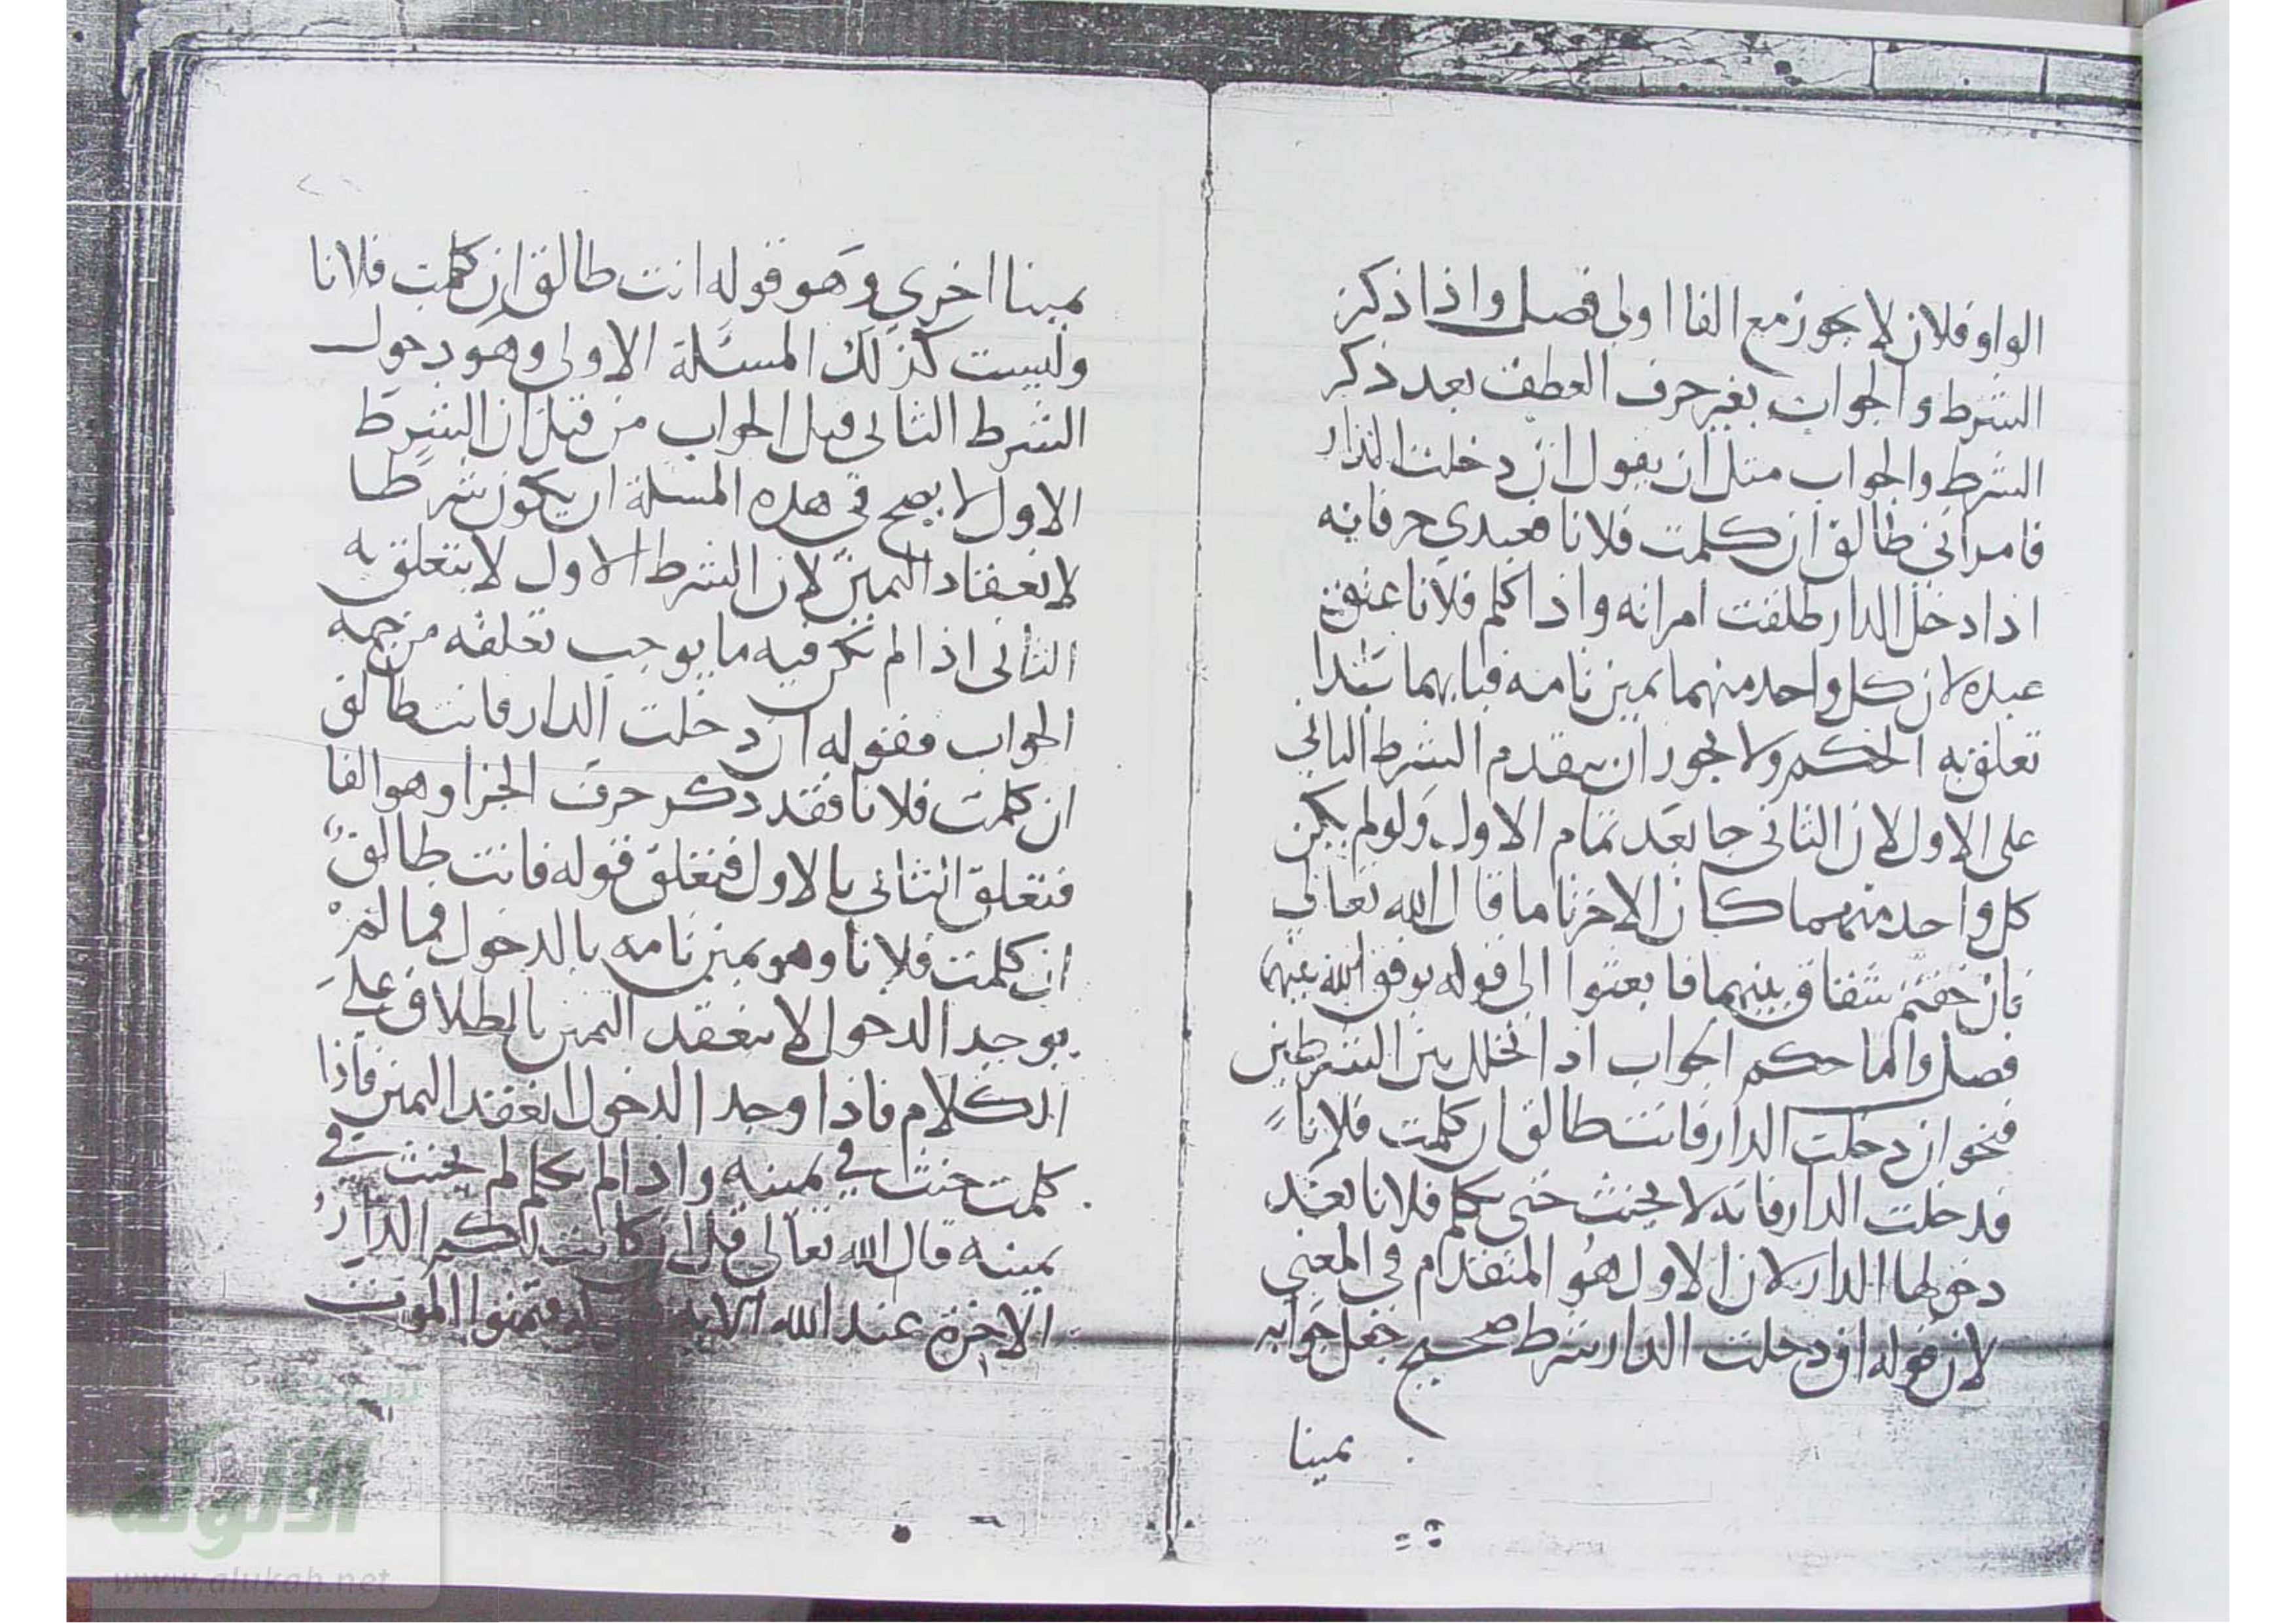 الواو فلان لا يجوز مع الفا اولى فصل واذا ذكر
الشرط والجواب بغير حرف العطف بعد ذكر
الشرط والجواب مثل ان يقول ان دخلت الدار
فامراتي طالق ان كلمت فلانا فعبدي حر فانه
اذا دخل الدار طلقت امراته واذا كلم فلانا عتق
عبده لان كل واحد منهما يمين تامة فبايهما
تعلق به الحكم ولا يجوز ان يتقدم الشرط الثاني
على الاول لان الثاني جا بعد تمام الاول ولو لم يكن
كل واحد منهما كان الاخر تاما قال الله تعالى
فان خفتم شقاق بينهما فابعثوا الى قوله يوفق الله بينهما
فصل واما حكم الجواب اذا تخلل بين الشرطين
فنحو ان دخلت الدار فانت طالق ان كلمت فلانا
فدخلت الدار فانه لا يحنث حتى تكلم فلانا بعد
دخولها الدار لان الاول هو المتقدم في المعنى
لان قوله ان دخلت الدار شرط صحيح جعل جوابه
يمينا
يمينا اخرى وهو قوله انت طالق ان كلمت فلانا
وليست كذلك المسئلة الاولى وهو دخول
الشرط الثاني قبل الجواب من قبل ان الشرط
الاول لا يصح في هذه المسئلة ان يكون شرطا
لانعقاد اليمين لان الشرط الاول لا يتعلق به
الثاني اذا لم يكن فيه ما يوجب تعلقه من جهة
الجواب فقوله ان دخلت الدار فانت طالق
ان كلمت فلانا فقد ذكر حرف الجزا وهو الفا
فتعلق الثاني بالاول فتعلق قوله فانت طالق
ان كلمت فلانا وهو يمين تامه بالدخول فما لم
يوجد الدخول لا ينعقد اليمين بالطلاق على
الكلام فاذا وجد الدخول انعقد اليمين فاذا
كلمت حنث في يمينه واذا لم تكلم لم يحنث في
يمينه قال الله تعالى قل ان كانت لكم الدار
الاخرة عند الله الاية فتمنوا الموت
شبكة
الألوكة
www.alukah.net